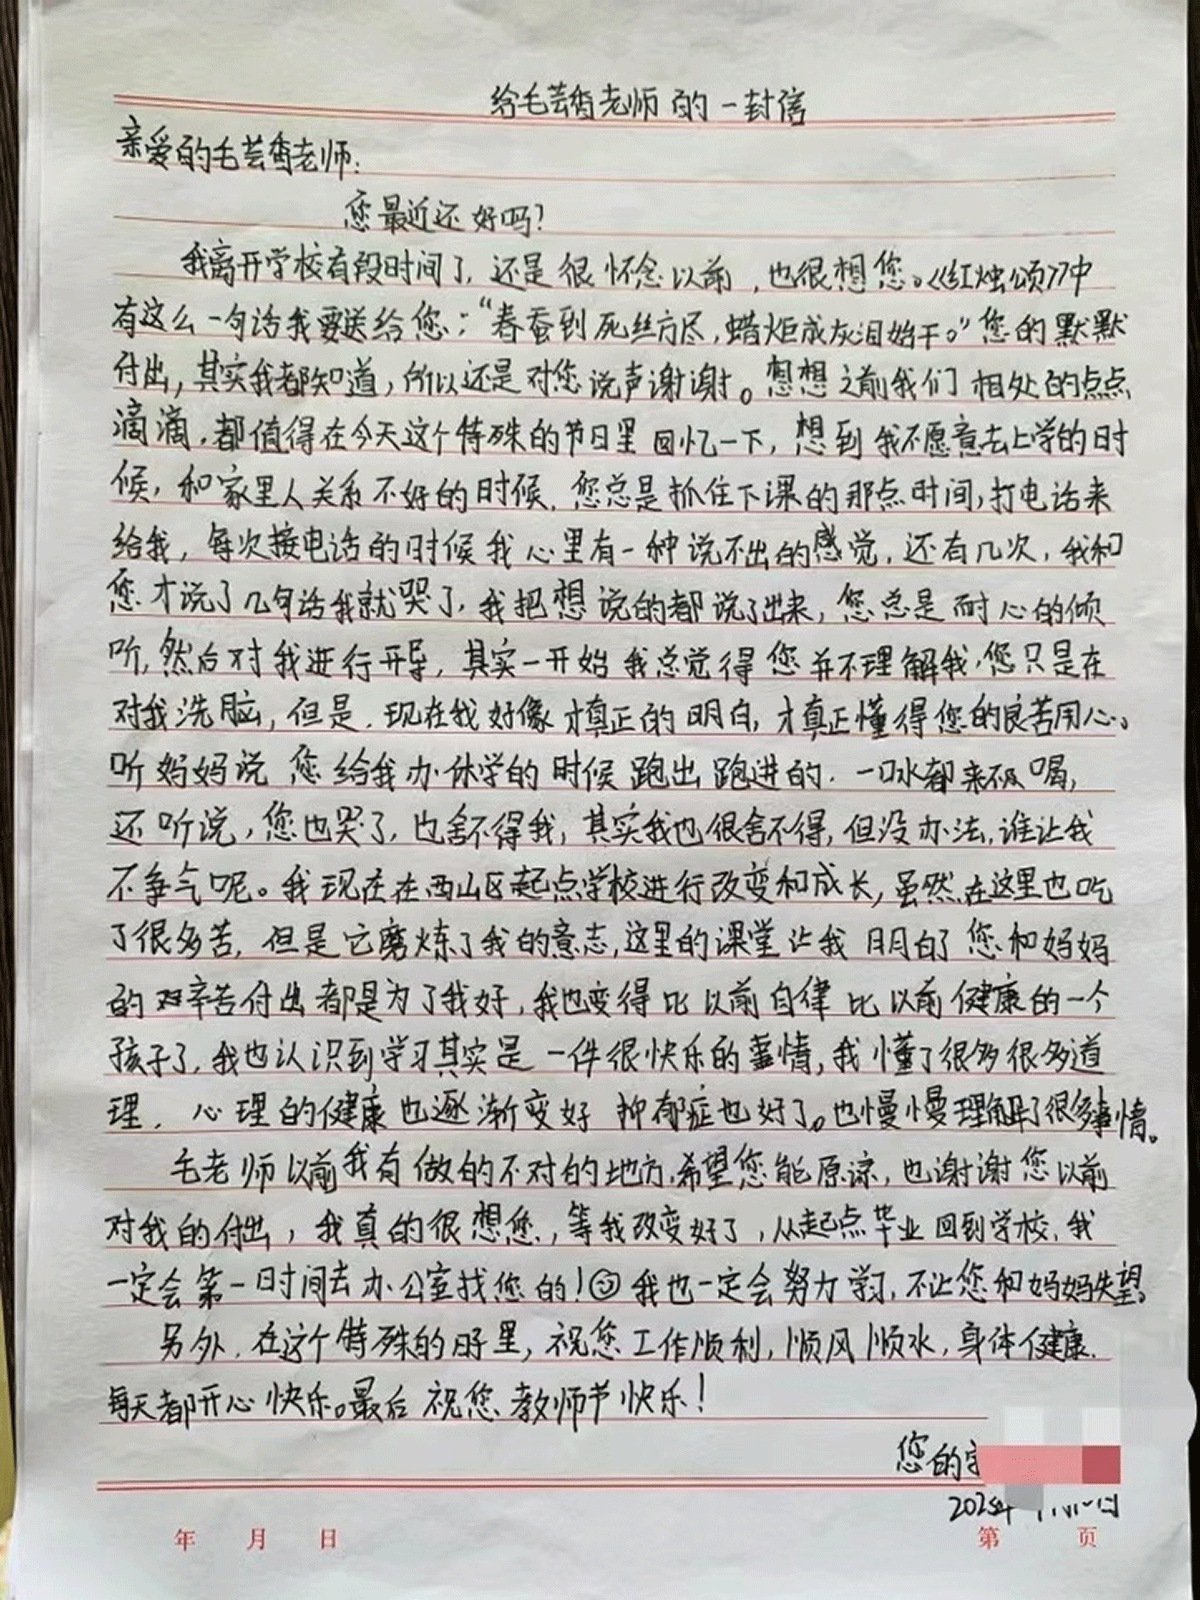 给毛芸香老师的一封信
亲爱的毛芸香老师：
您最近还好吗？
我离开学校有段时间了，还是很怀念以前，也很想您。《红烛颂》中
有这么一句话我要送给您：“春蚕到死丝方尽，蜡炬成灰泪始干。”您的默默
付出，其实我都知道，所以还是对您说声谢谢。想想之前我们相处的点点
滴滴，都值得在今天这个特殊的节日里回忆一下，想到我不愿意去上学的时
候，和家里人关系不好的时候，您总是抓住下课的那点时间，打电话来
给我，每次接电话的时候我心里有一种说不出的感觉，还有几次，我和
您才说了几句话我就哭了，我把想说的都说了出来，您总是耐心的倾
听，然后对我进行开导，其实一开始我总觉得您并不理解我，您只是在
对我洗脑，但是，现在我好像才真正的明白，才真正懂得您的良苦用心。
听妈妈说您给我办休学的时候跑出跑进的，一口水都来不及喝，
还听说，您也哭了，也舍不得我，其实我也很舍不得，但没办法，谁让我
不争气呢。我现在在西山区起点学校进行改变和成长，虽然在这里也吃
了很多苦，但是它磨炼了我的意志，这里的课堂让我明白了您和妈妈
的艰辛苦付出都是为了我好，我也变得比以前自律比以前健康的一个
孩子了，我也认识到学习其实是一件很快乐的事情，我懂了很多很多道
理，心理的健康也逐渐变好抑郁症也好了。也慢慢理解了很多事情。
毛老师以前我有做的不对的地方，希望您能原谅，也谢谢您以前
对我的付出，我真的很想您，等我改变好了，从起点毕业回到学校，我
一定会第一时间去办公室找您的！我也一定会努力学习，不让您和妈妈失望。
另外，在这个特殊的日子里，祝您工作顺利，顺风顺水，身体健康，
每天都开心快乐。最后祝您教师节快乐！
您的
年 月 日 第 页